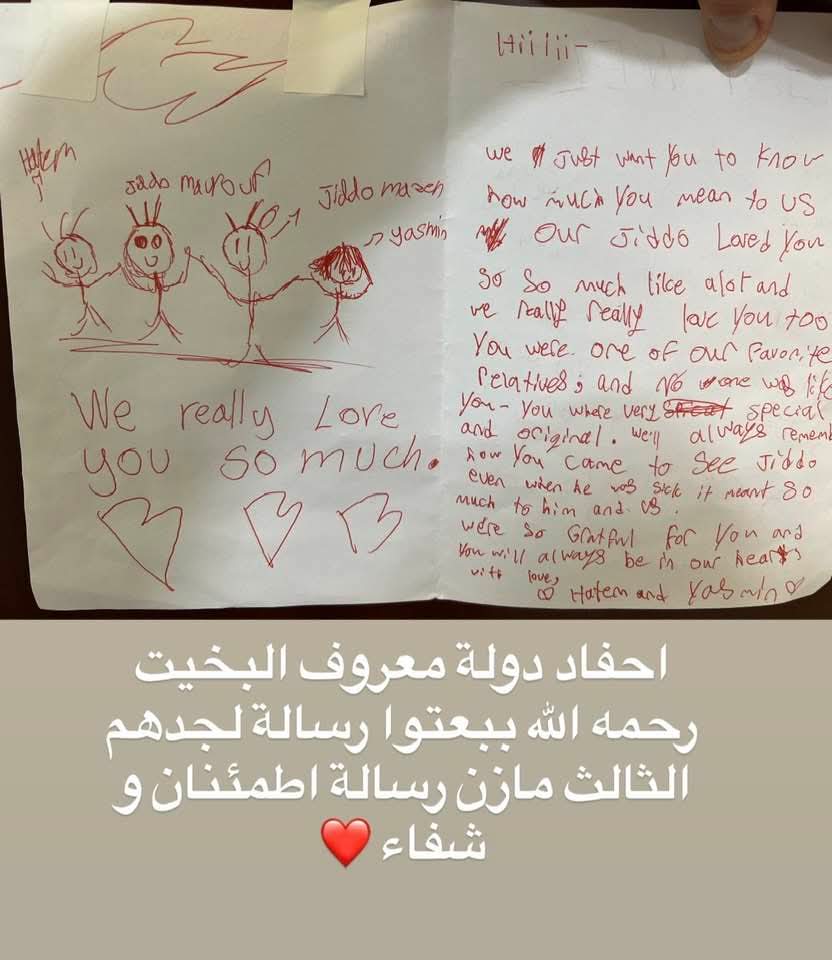 Hatem
Jiddo marouf
Jiddo mazen
yasmin
We really Love
you so much.
Hiiiii-
we Just want you to know
how much you mean to us
our Jiddo Loved you
so so much like alot and
we really really love you too
You were one of our favorite
relatives, and No one was lik
you- you where very special
and original. we'll always rememb
how you came to see Jiddo
even when he was sick it meant so
much to him and us.
we're so Gratful for you and
you will always be in our hearts
with love,
♡ Hatem and Yasmin ♡
احفاد دولة معروف البخيت
رحمه الله ببعتوا رسالة لجدهم
الثالث مازن رسالة اطمئنان و
شفاء ❤️